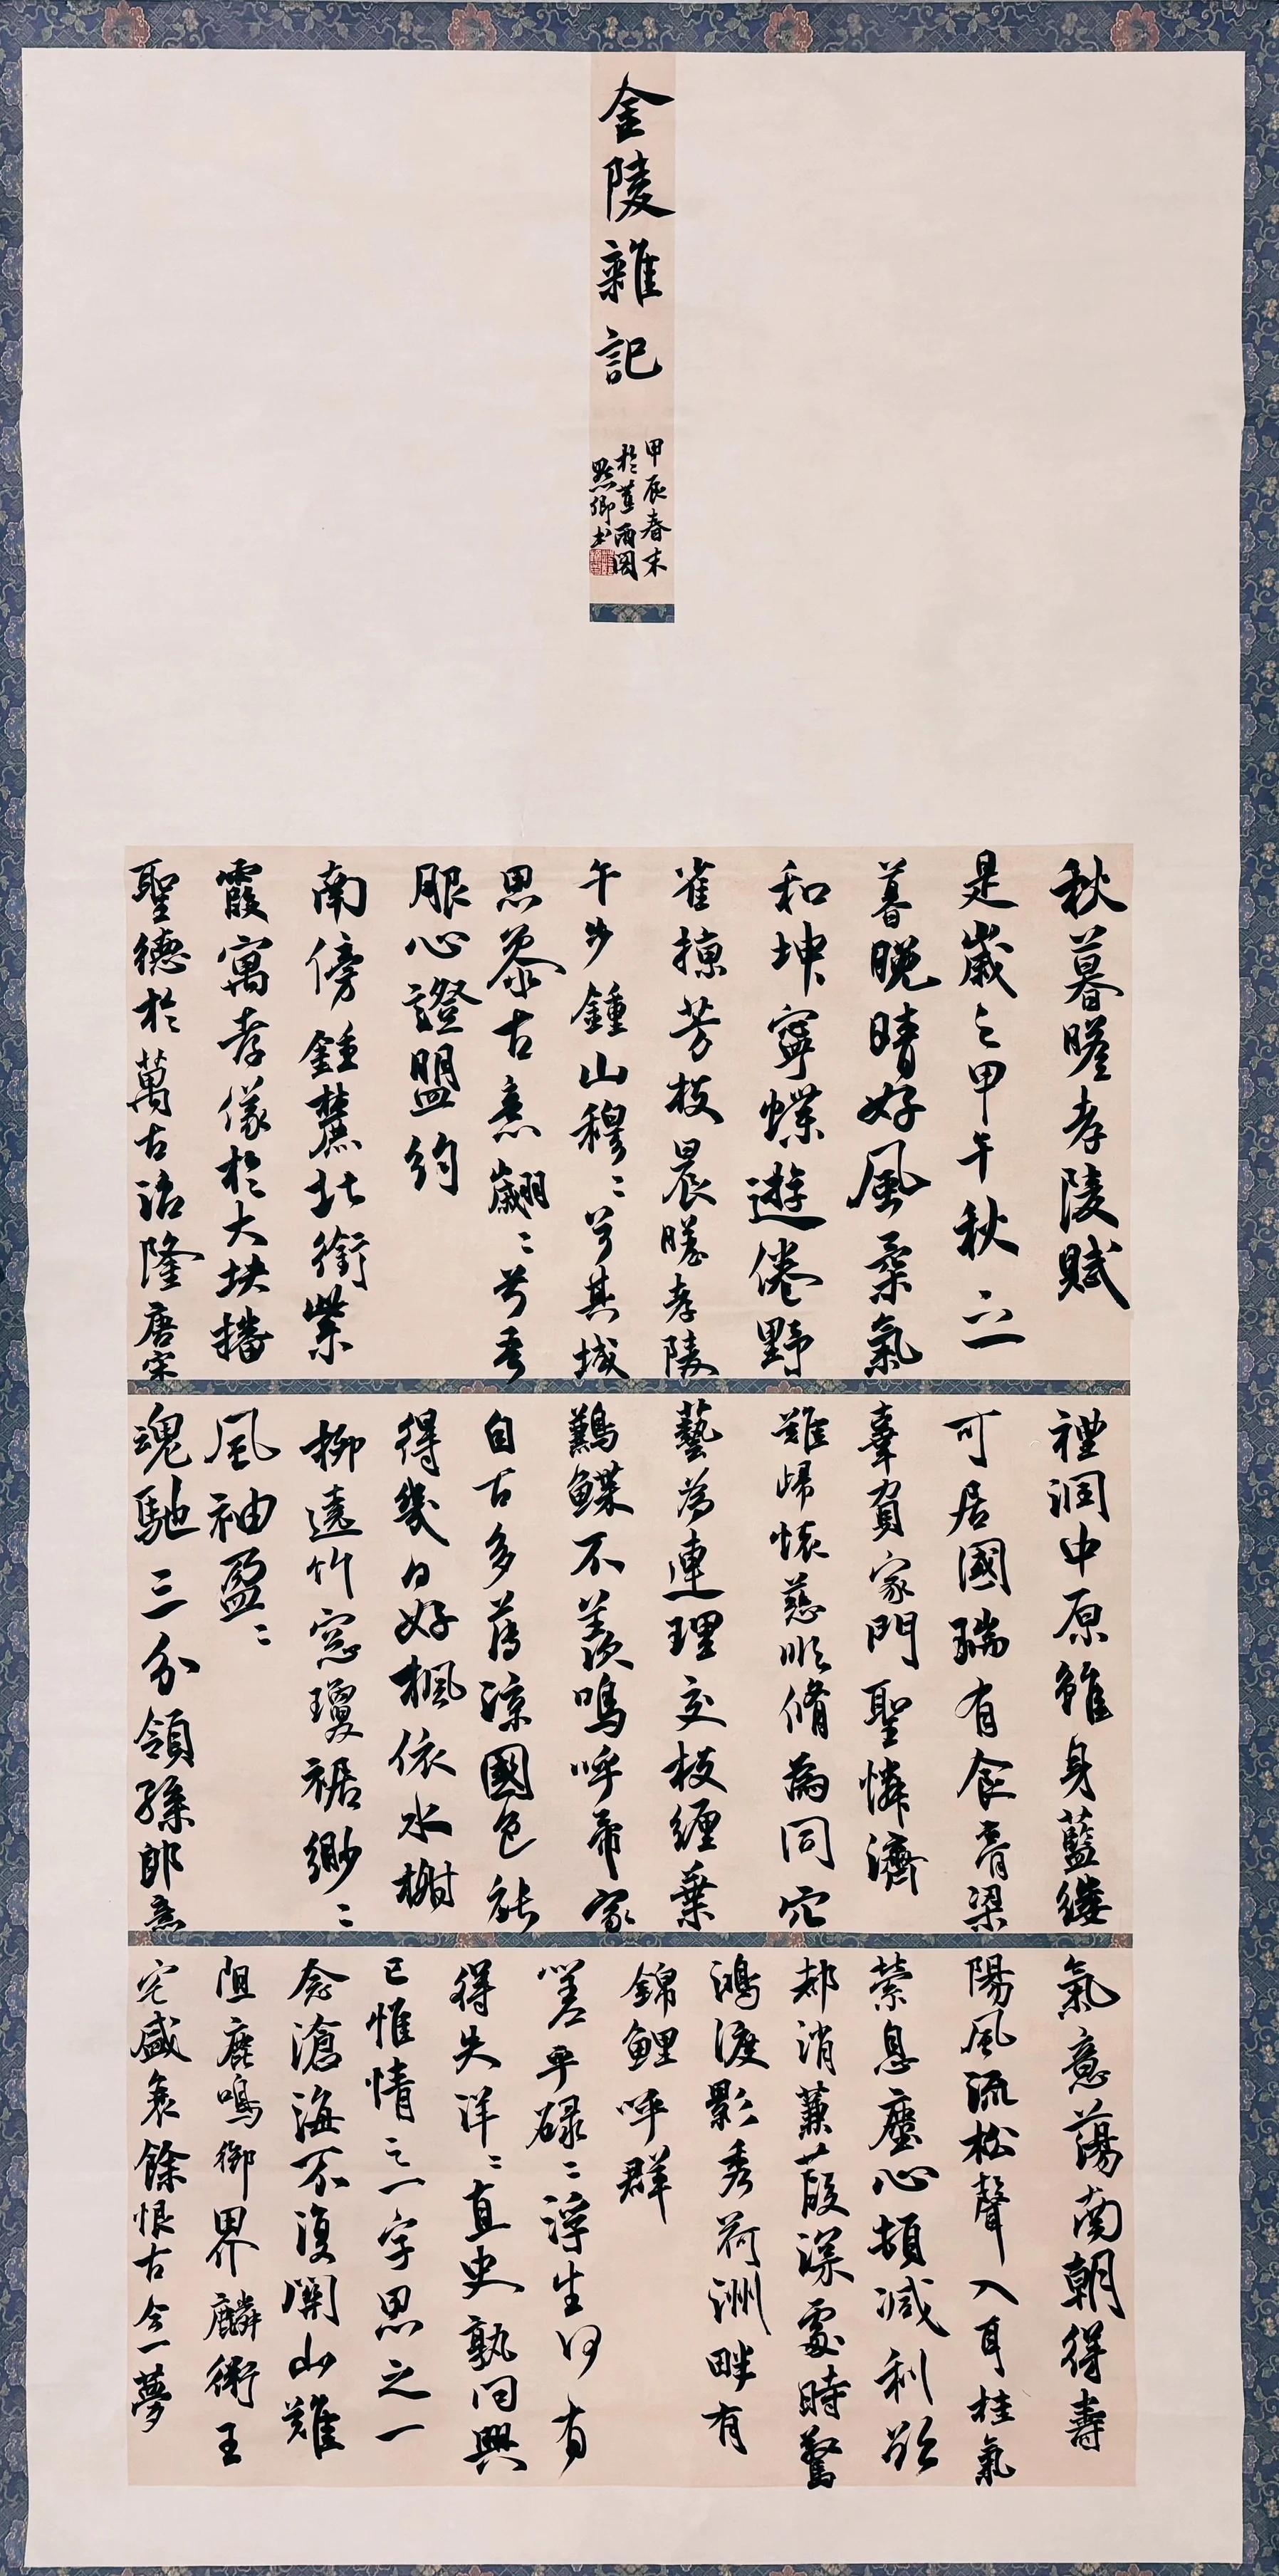 金陵雜記
甲辰春末
於草雨閣
點卿書
秋暮瞻孝陵賦
是歲之甲午秋之
暮晚晴好風柔氣
和坤寧蝶遊倦野
雀掠芳枝晨瞻孝陵
午步鍾山穆〻兮其域
思黍古意翽〻兮吾
服心證盟約
南傍鍾麓北銜紫
霞寓孝儀於大块播
聖德於萬古治隆唐宋
禮潤中原雖身藍縷
可居國瑞有食膏粱
辜負家門聖憐濟
難歸懷慈順脩為同穴
藝為連理交枝纏葉
鶼鰈不羨嗚呼帝家
自古多薄涼國色能
得幾日好楓依水榭
柳遠竹窓瓊裾緲〻
風袖盈〻
魂馳三分領孫郎意
氣意蕩南朝得壽
陽風流松聲入耳桂氣
縈息塵心頓減利欲
都消蒹葭深處時驚
鴻渡影秀荷洲畔有
錦鯉呼群
嗟乎碌〻浮生何有
得失洋〻直史孰問興
已惟情之一字思之一
念滄海不復關山難
阻鹿鳴御界麟銜王
宅盛衰餘恨古今一夢